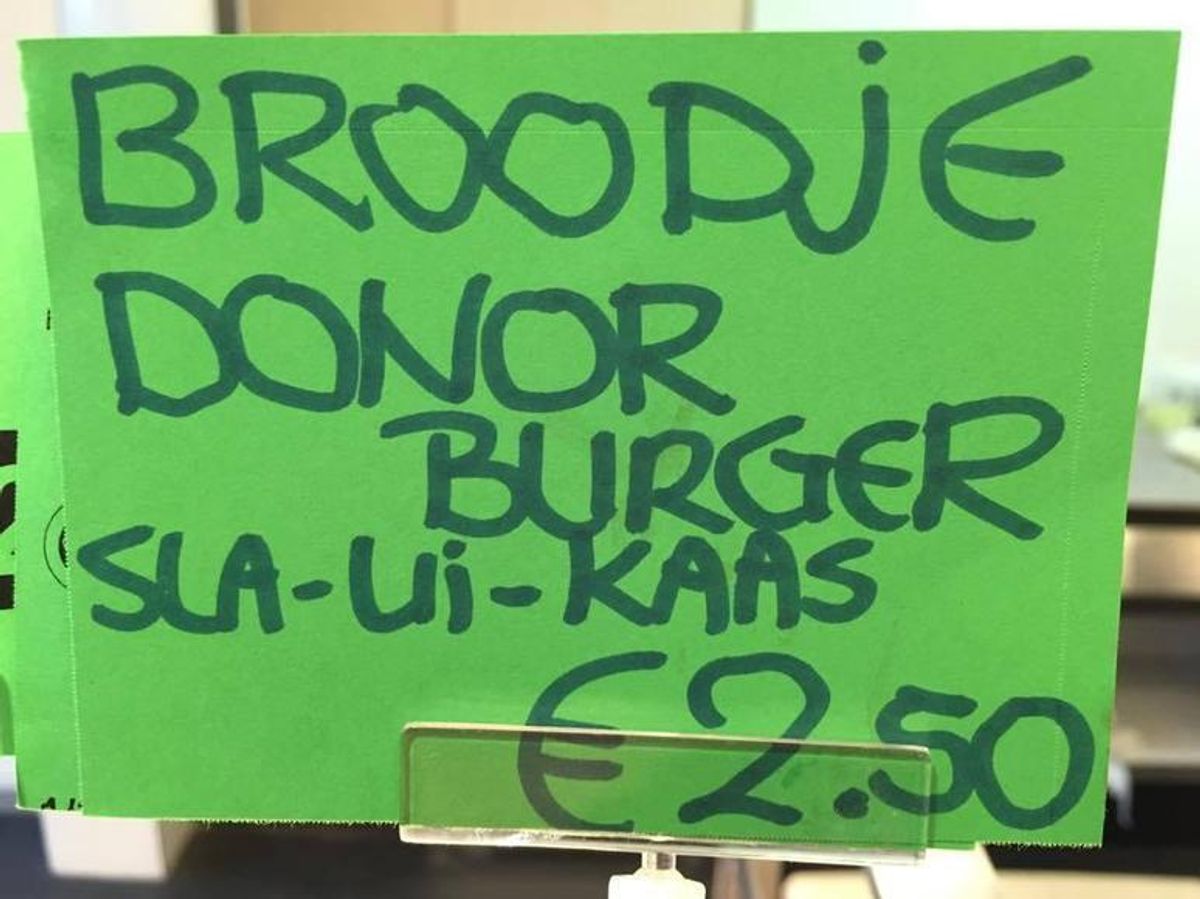 BROODJE
DONOR
BURGER
SLA-Ui-KAAS
€2.50